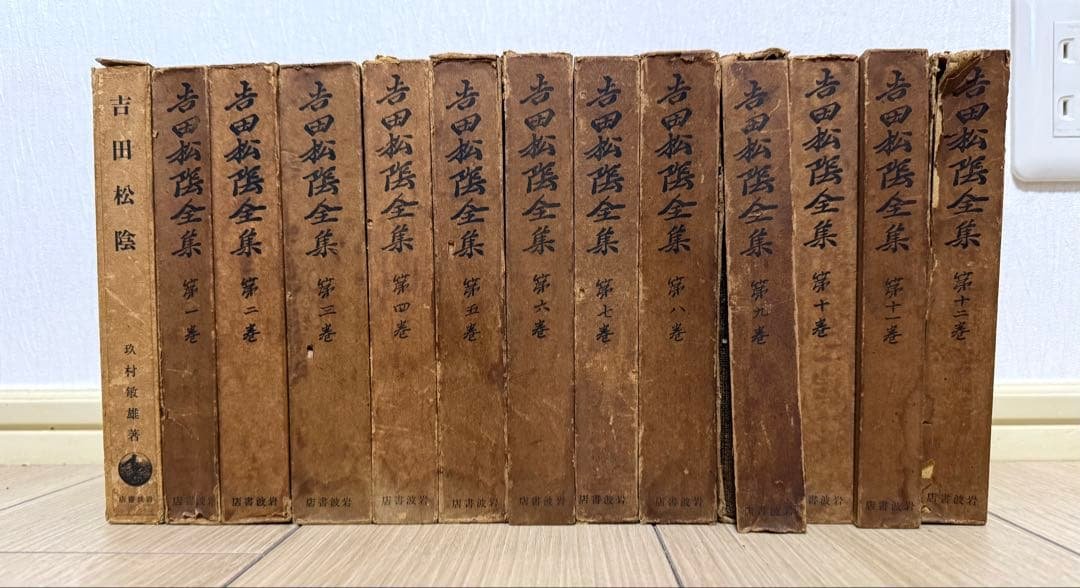 吉田松陰
玖村敏雄著
岩波書店
吉田松陰全集
第一巻
岩波書店
吉田松陰全集
第二巻
岩波書店
吉田松陰全集
第三巻
岩波書店
吉田松陰全集
第四巻
岩波書店
吉田松陰全集
第五巻
岩波書店
吉田松陰全集
第六巻
岩波書店
吉田松陰全集
第七巻
岩波書店
吉田松陰全集
第八巻
岩波書店
吉田松陰全集
第九巻
岩波書店
吉田松陰全集
第十巻
岩波書店
吉田松陰全集
第十一巻
岩波書店
吉田松陰全集
第十二巻
岩波書店